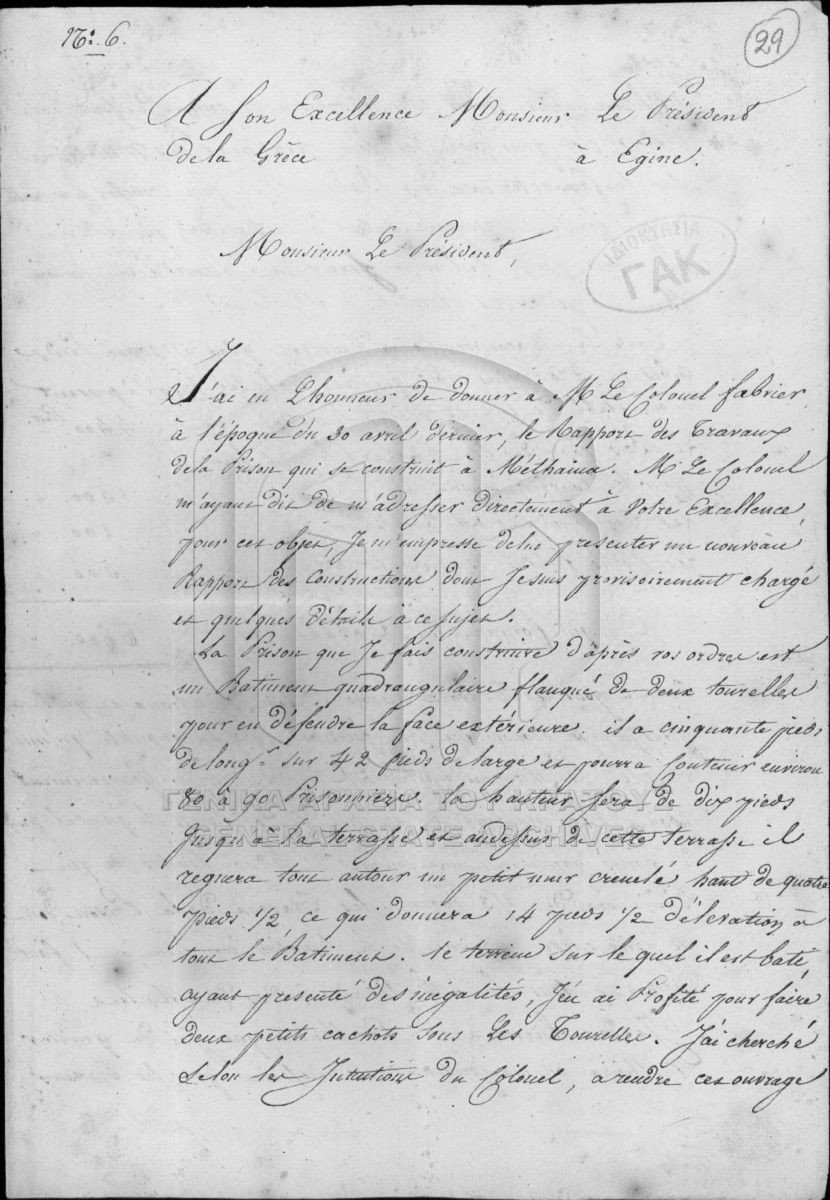 No. 6.
29
A Son Excellence Monsieur Le Président
de la Grèce à Egine.
Monsieur Le Président,
ΙΔΙΟΚΤΗΣΙΑ
ΓΑΚ
J'ai eu L'honneur de donner à Mr Le Colonel fabrier,
à l'époque du 30 avril dernier, le Rapport des Travaux
de la Prison qui se construit à Méthana. Mr Le Colonel
m'ayant dit de m'adresser directement à Votre Excellence
pour cet objet, Je m'empresse de lui presenter un nouveau
Rapport des Constructions dont Je suis provisoirement chargé
et quelques détails à ce sujet.
La Prison que Je fais construire d'après vos ordres est
un Batiment quadrangulaire flanqué de deux tourelles
pour en défendre la face extérieure. il a cinquante pieds
de longr. sur 42 pieds de large et pourra Contenir environ
80 à 90 Prisonniers. la hauteur sera de dix pieds
Jusqu'à la terrasse et audessus de cette terrasse il
regnera tout autour un petit mur crenelé haut de quatre
pieds 1/2, ce qui donnera 14 pieds 1/2 d'élevation à
tout le Batiment. le terrein sur le quel il est bati
ayant presenté des inégalités, J'en ai Profité pour faire
deux petits cachots sous Les Tourelles. J'ai cherché
selon les Intentions du Colonel, à rendre cet ouvrage
ΓΕΝΙΚΑ ΑΡΧΕΙΑ ΤΟΥ ΚΡΑΤΟΥΣ
GENERAL STATE ARCHIVES